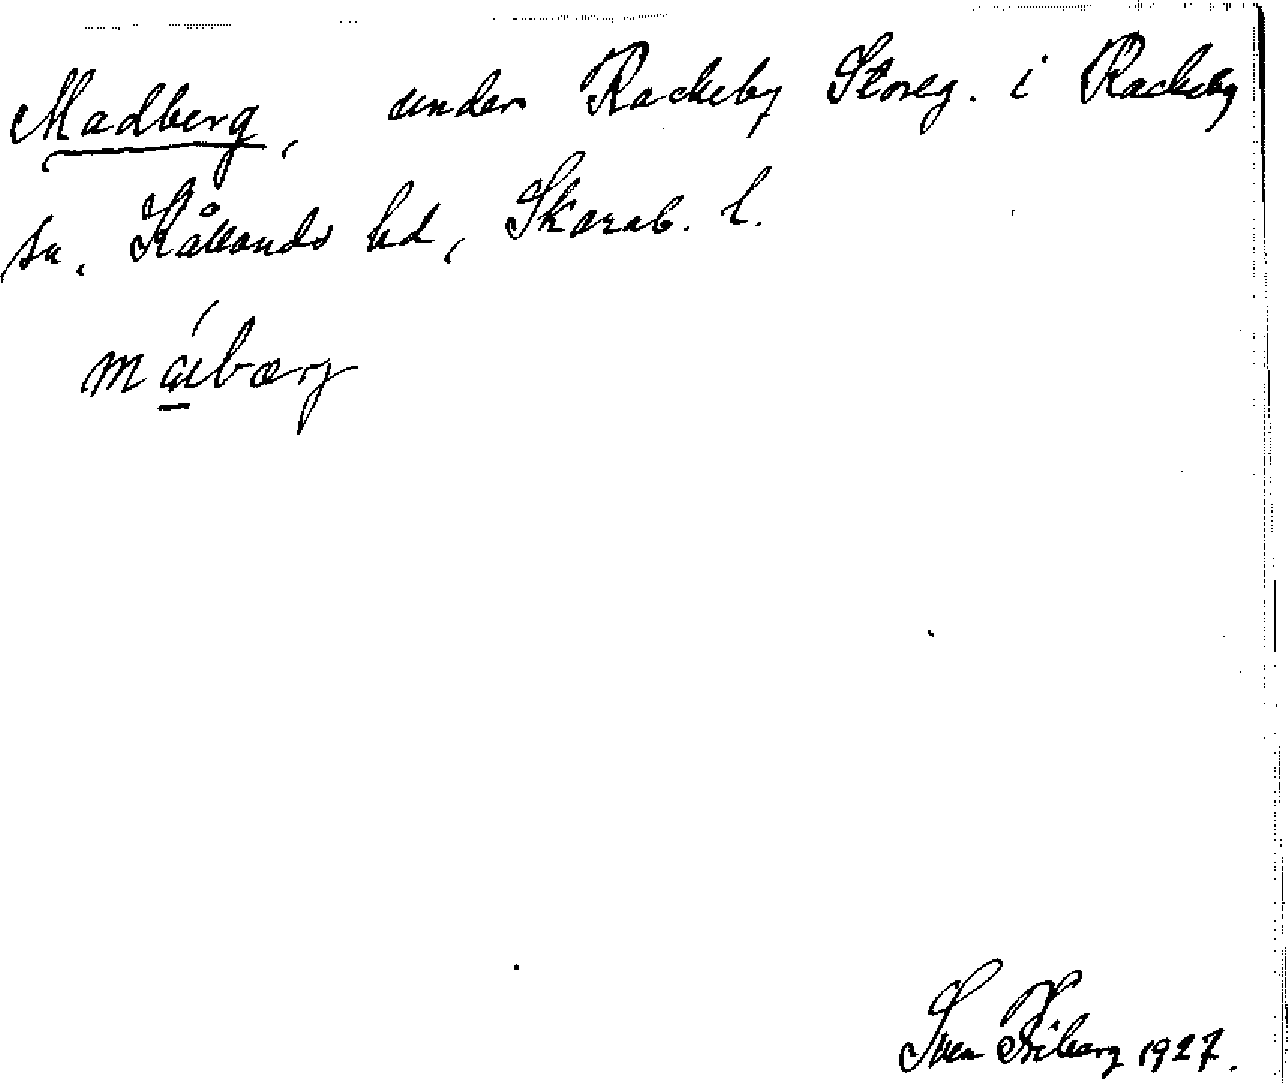 Madberg, under Rackeby Storeg. i Rackeby
sn, Kållands hd, Skarab. l.
máibærj
Sven Friberg 1927.